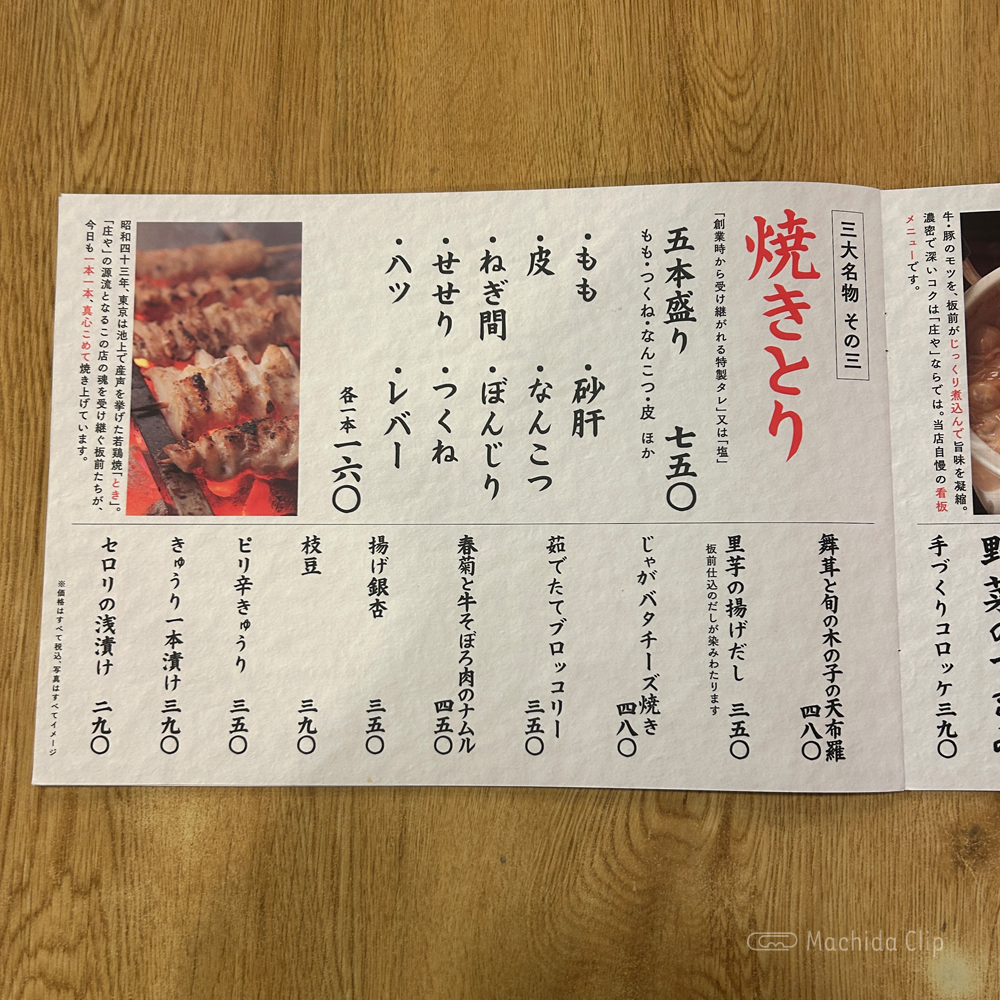 牛・豚のモツを、板前がじっくり煮込んで旨味を凝縮。
濃密で深いコクは「庄や」ならでは。当店自慢の看板
メニューです。
手づくりコロッケ 三九〇
三大名物 その三
焼きとり
「創業時から受け継がれる特製タレ」又は「塩」
五本盛り 七五〇
もも・つくね・なんこつ・皮 ほか
・もも ・砂肝
・皮 ・なんこつ
・ねぎ間 ・ぼんじり
・せせり ・つくね
・ハツ ・レバー
各一本 一六〇
昭和四十三年、東京は池上で産声を挙げた若鶏焼「とき」。
「庄や」の源流となるこの店の魂を受け継ぐ板前たちが、
今日も一本一本、真心こめて焼き上げています。
舞茸と旬の木の子の天布羅
四八〇
里芋の揚げだし 三五〇
板前仕込のだしが染みわたります
じゃがバタチーズ焼き
四八〇
茹でたてブロッコリー
三五〇
春菊と牛そぼろ肉のナムル
四五〇
揚げ銀杏 三五〇
枝豆 三九〇
ピリ辛きゅうり 三五〇
きゅうり一本漬け 三九〇
セロリの浅漬け 二九〇
※価格はすべて税込、写真はすべてイメージ
Machida Clip